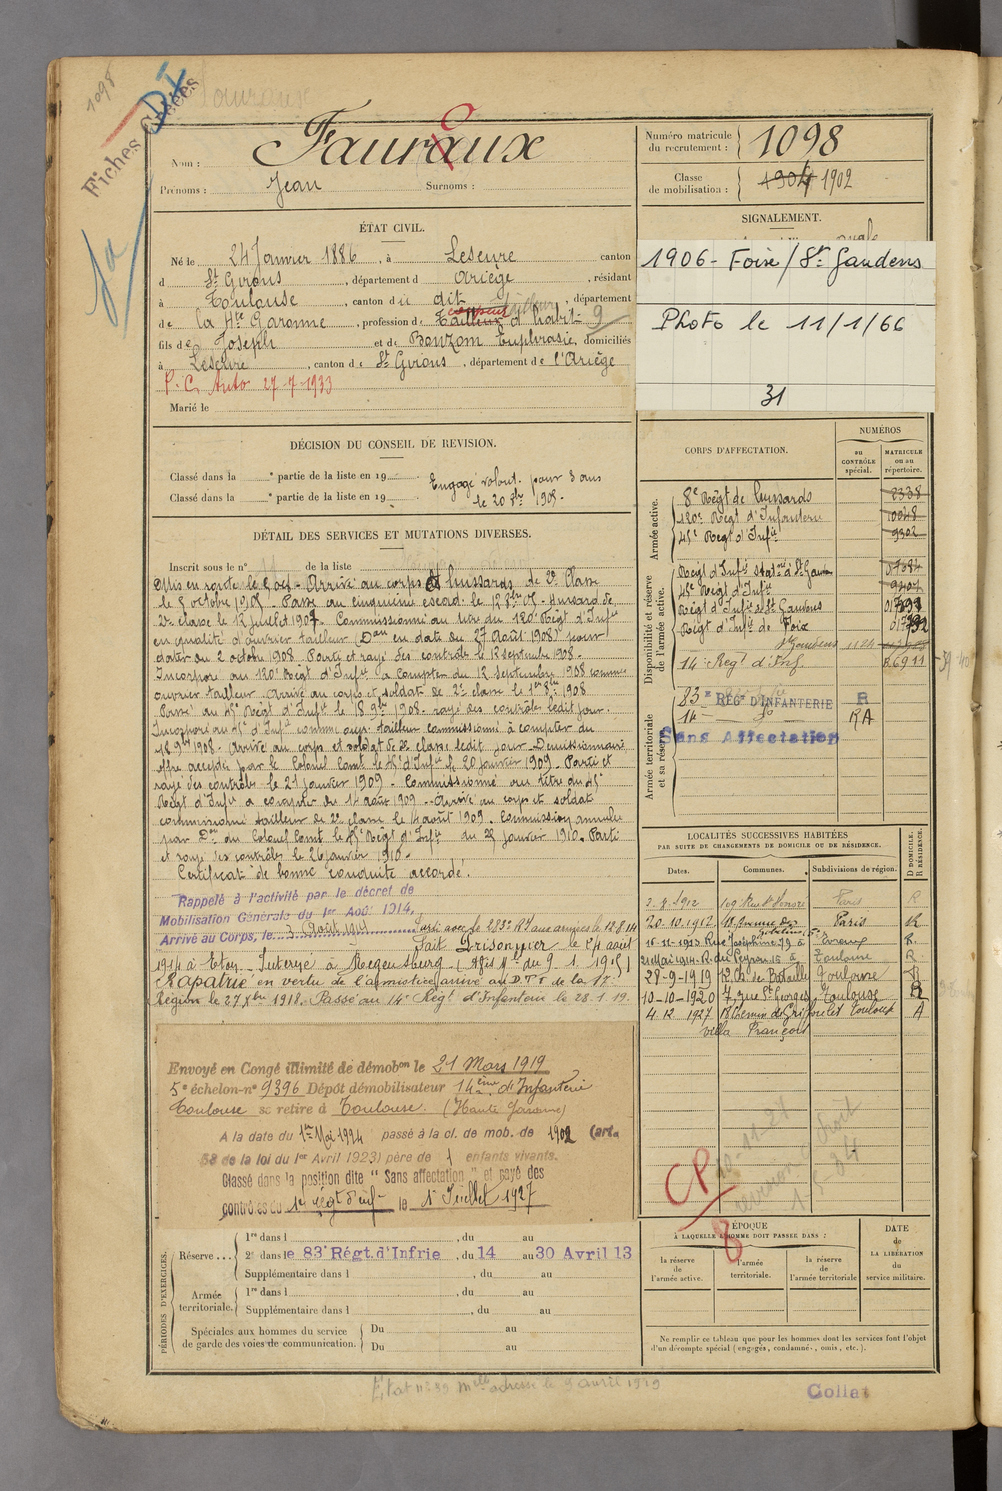 1098
Fiches
Fauraux
Nom :
Prénoms : Jean Surnoms :
Numéro matricule du recrutement : 1098
Classe de mobilisation : 1904 1902
ÉTAT CIVIL.
Né le 24 Janvier 1886, à Lescure canton
d St Girons, département d Ariège, résidant
à Toulouse, canton du dit, département
de la Hte Garonne, profession de Tailleur d'habits 9
fils de Joseph et de Bonzom Euphrasie, domiciliés
à Lescure, canton de St Girons, département de l'Ariège
P. C. Auto 27-7-1933
Marié le
SIGNALEMENT.
1906 - Foix / St Gaudens
Photo le 11/1/66
31
DÉCISION DU CONSEIL DE REVISION.
Classé dans la e partie de la liste en 19
Classé dans la e partie de la liste en 19
Engagé volont. pour 3 ans
le 20 7bre 1905.
DÉTAIL DES SERVICES ET MUTATIONS DIVERSES.
Inscrit sous le n° de la liste
Mis en route le 5 oct. Arrivé au corps hussards de 2e Classe
le 5 octobre 1905. Passé au cinquième escad. le 12 8bre 05. Hussard de
2e classe le 12 juillet 1907. Commissionné au titre du 120e Régt d'Infie
en qualité d'ouvrier tailleur (Don en date du 27 Août 1908) pour
dater du 2 octobre 1908. Parti et rayé des contrôles le 12 septembre 1908.
Incorporé au 120e Régt d'Infie à compter du 12 septembre 1908 comme
ouvrier tailleur. Arrivé au corps et soldat de 2e classe le 1er 8bre 1908
Passé au 45e Régt d'Infie le 18 9bre 1908. rayé des contrôles ledit jour.
Incorporé au 45e d'Infie comme ouvr. tailleur commissionné à compter du
18 9bre 1908. Arrivé au corps et soldat de 2e classe ledit jour. Démissionnaire
offre acceptée par le Colonel Comt le 45e d'Infie le 20 janvier 1909. Parti et
rayé des contrôles le 21 janvier 1909. Commissionné au titre du 45e
Régt d'Infie à compter du 14 août 1909. Arrivé au corps et soldat
commissionné tailleur de 2e classe le 14 août 1909. Commission annulée
par Don du Colonel Comt le 45e Régt d'Infie du 25 janvier 1910. Parti
et rayé des contrôles le 26 janvier 1910.
Certificat de bonne conduite accordé.
Rappelé à l'activité par le décret de
Mobilisation Générale du 1er Août 1914,
Arrivé au Corps, le 3 Août 1914 Parti avec le 283e RI aux armées le 12 8 14
Fait Prisonnier le 24 août
1914 à Eton. Interné à Regensburg. (Avis Mel du 9. 1. 1915)
Rapatrié en vertu de l'armistice arrivé au D.T.I de la 17e
Région le 27 Xbre 1918. Passé au 14e Régt d'Infanterie le 28.1.19.
Envoyé en Congé illimité de démobon le 21 Mars 1919
5e échelon-n° 9396 Dépôt démobilisateur 14ème d'Infanterie
Toulouse se retire à Toulouse. (Haute Garonne)
A la date du 1er Mai 1924 passé à la cl. de mob. de 1902 (art.
58 de la loi du 1er Avril 1923) père de 1 enfants vivants.
Classé dans la position dite "Sans affectation" et rayé des
contrôles du 14e régt d'inf. le 1er Juillet 1927
CORPS D'AFFECTATION.
NUMÉROS
au CONTRÔLE spécial.
MATRICULE ou au répertoire.
Armée active.
8e Régt de hussards 2338
120e Régt d'Infanterie 10048
45e Régt d'Infie 9302
Disponibilité et réserve de l'armée active.
Régt d'Infie stat. de St Gaudens
45e Régt d'Infie
Régt d'Infie de St Gaudens
Régt d'Infie de Foix
St Gaudens
14e Régt d'Inf. 86911
Armée territoriale et sa réserve.
83e RÉGt D'INFANTERIE R
14e do RA
Sans Affectation
LOCALITÉS SUCCESSIVES HABITÉES
PAR SUITE DE CHANGEMENTS DE DOMICILE OU DE RÉSIDENCE.
Dates. Communes. Subdivisions de région. D DOMICILE. R RÉSIDENCE.
2.4.1912 109 Rue St Honoré Paris R
20.10.1912 18 Avenue des Gobelins Paris R
16-11-1913 Rue Joséphine 79 à Evreux R.
21 Mai 1914 R. du Peyrou 15 à Toulouse R.
29-9-1919 12, Ch. de Bataille Toulouse
10-10-1920 7, rue St Georges Toulouse R
4.12.1927 18 Chemin de Griffoulet Toulouse A
villa François
CP
8
PÉRIODES D'EXERCICES.
Réserve ...
1re dans l , du au
2e dans le 83e Régt. d'Infrie, du 14 au 30 Avril 13
Supplémentaire dans l , du au
Armée territoriale.
1re dans l , du au
Supplémentaire dans l , du au
Spéciales aux hommes du service
de garde des voies de communication.
Du au
Du au
ÉPOQUE
À LAQUELLE L'HOMME DOIT PASSER DANS :
la réserve de l'armée active.
l'armée territoriale.
la réserve de l'armée territoriale
DATE de LA LIBÉRATION du service militaire.
Ne remplir ce tableau que pour les hommes dont les services font l'objet
d'un décompte spécial (engagés, condamnés, omis, etc.).
adresse le 9 avril 1919